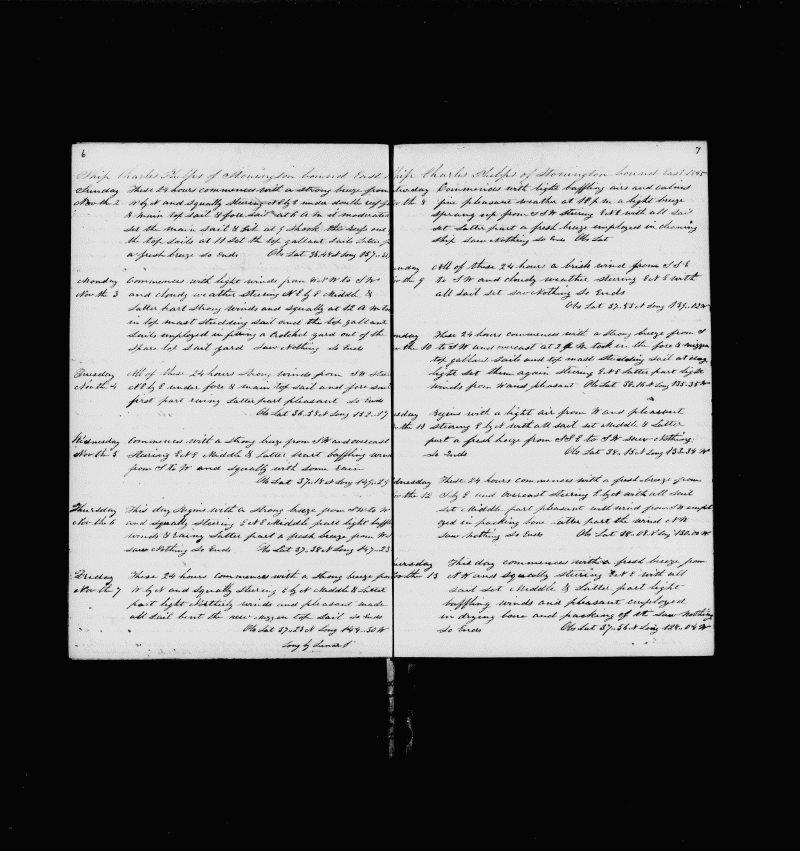 6
Ship Charles Phelps of Stonington bound East
Sunday These 24 hours commences with a strong breeze from
Nov the 2 W by N and squally steering N E by E under double reef
& main top sail & fore sail at 6 A M it moderated
set the main sail & Gib at 9 shook the reefs out
the top sails at 10 set the top gallant sails Latter
a fresh breeze So Ends Obs Lat 35.48 N Long 157
Monday Commences with light winds from W N W to S W
Nov the 3 and cloudy weather steering N E by E Middle &
Latter part Strong winds and squally at 12 A M
in top mast studding sail and the top gallant
sails employed in fixing a Crotchet yard out of the
spare top sail yard saw Nothing So Ends
Tuesday All of these 24 hours Strong winds from S W
Nov the 4 N E by E under fore & main top sail and fore sail
first part rainy Latter part pleasant So Ends
Obs Lat 36.38 N Long 152.17
Wednesday Commences with a strong breeze from S W and overcast
Nov the 5 Steering E N E Middle & Latter part baffling wind
from S to W and squally with some rain
Obs Lat 37.18 N Long 149.29
Thursday This day Begins with a strong breeze from S W to W
Nov the 6 and squally Steering E N E Middle part light
winds & rainy Latter part a fresh breeze from
saw Nothing So Ends Obs Lat 37.38 N Long 147.23
Friday These 24 hours commences with a strong breeze from
Nov the 7 W by N and squally steering E by N Middle & Latter
part light Northerly winds and pleasant made
all sail bent the new mizzen top sail So Ends
Obs Lat 37.23 N Long 144.30 W
Long by Lunar
7
Ship Charles Phelps of Stonington bound East 1845
Saturday Commences with light baffling airs and calms
Nov the 8 fine pleasant weather at 10 P.M. a light breeze
sprang up from S S W Steering E N E with all sail
set Latter part a fresh breeze employed in cleaning
ship saw Nothing So Ends Obs Lat
Sunday All of these 24 hours a brisk wind from S S E
Nov the 9 to S W and cloudy weather steering E N E with
all sail set saw Nothing So Ends
Obs Lat 37.53 N Long 139.02 W
Monday These 24 hours commences with a strong breeze from S
Nov the 10 to S W and overcast at 2 P M took in the fore & mizzen
top gallant sails and top mast studding sail at day
light set them again steering E N E Latter part light
winds from W and pleasant Obs Lat 38.16 N Long 135.35 W
Tuesday Begins with a light air from W and pleasant
Nov the 11 steering E by N with all sail set Middle & Latter
part a fresh breeze from S S E to S W saw Nothing
So Ends Obs Lat 38.15 N Long 133.34 W
Wednesday These 24 hours commences with a fresh breeze from
Nov the 12 S by E and overcast steering E by N with all sail
set Middle part pleasant with wind from S W empl
oyed in packing bone after part the wind N W
saw nothing So Ends Obs Lat 38.08 N Long 130.00 W
Thursday This day commences with a fresh breeze from
Nov the 13 N W and squally steering E N E with all
sail set Middle & Latter part light
baffling winds and pleasant employed
in drying bone and packing of it saw Nothing
So Ends Obs Lat 37.56 N Long 128.04 W